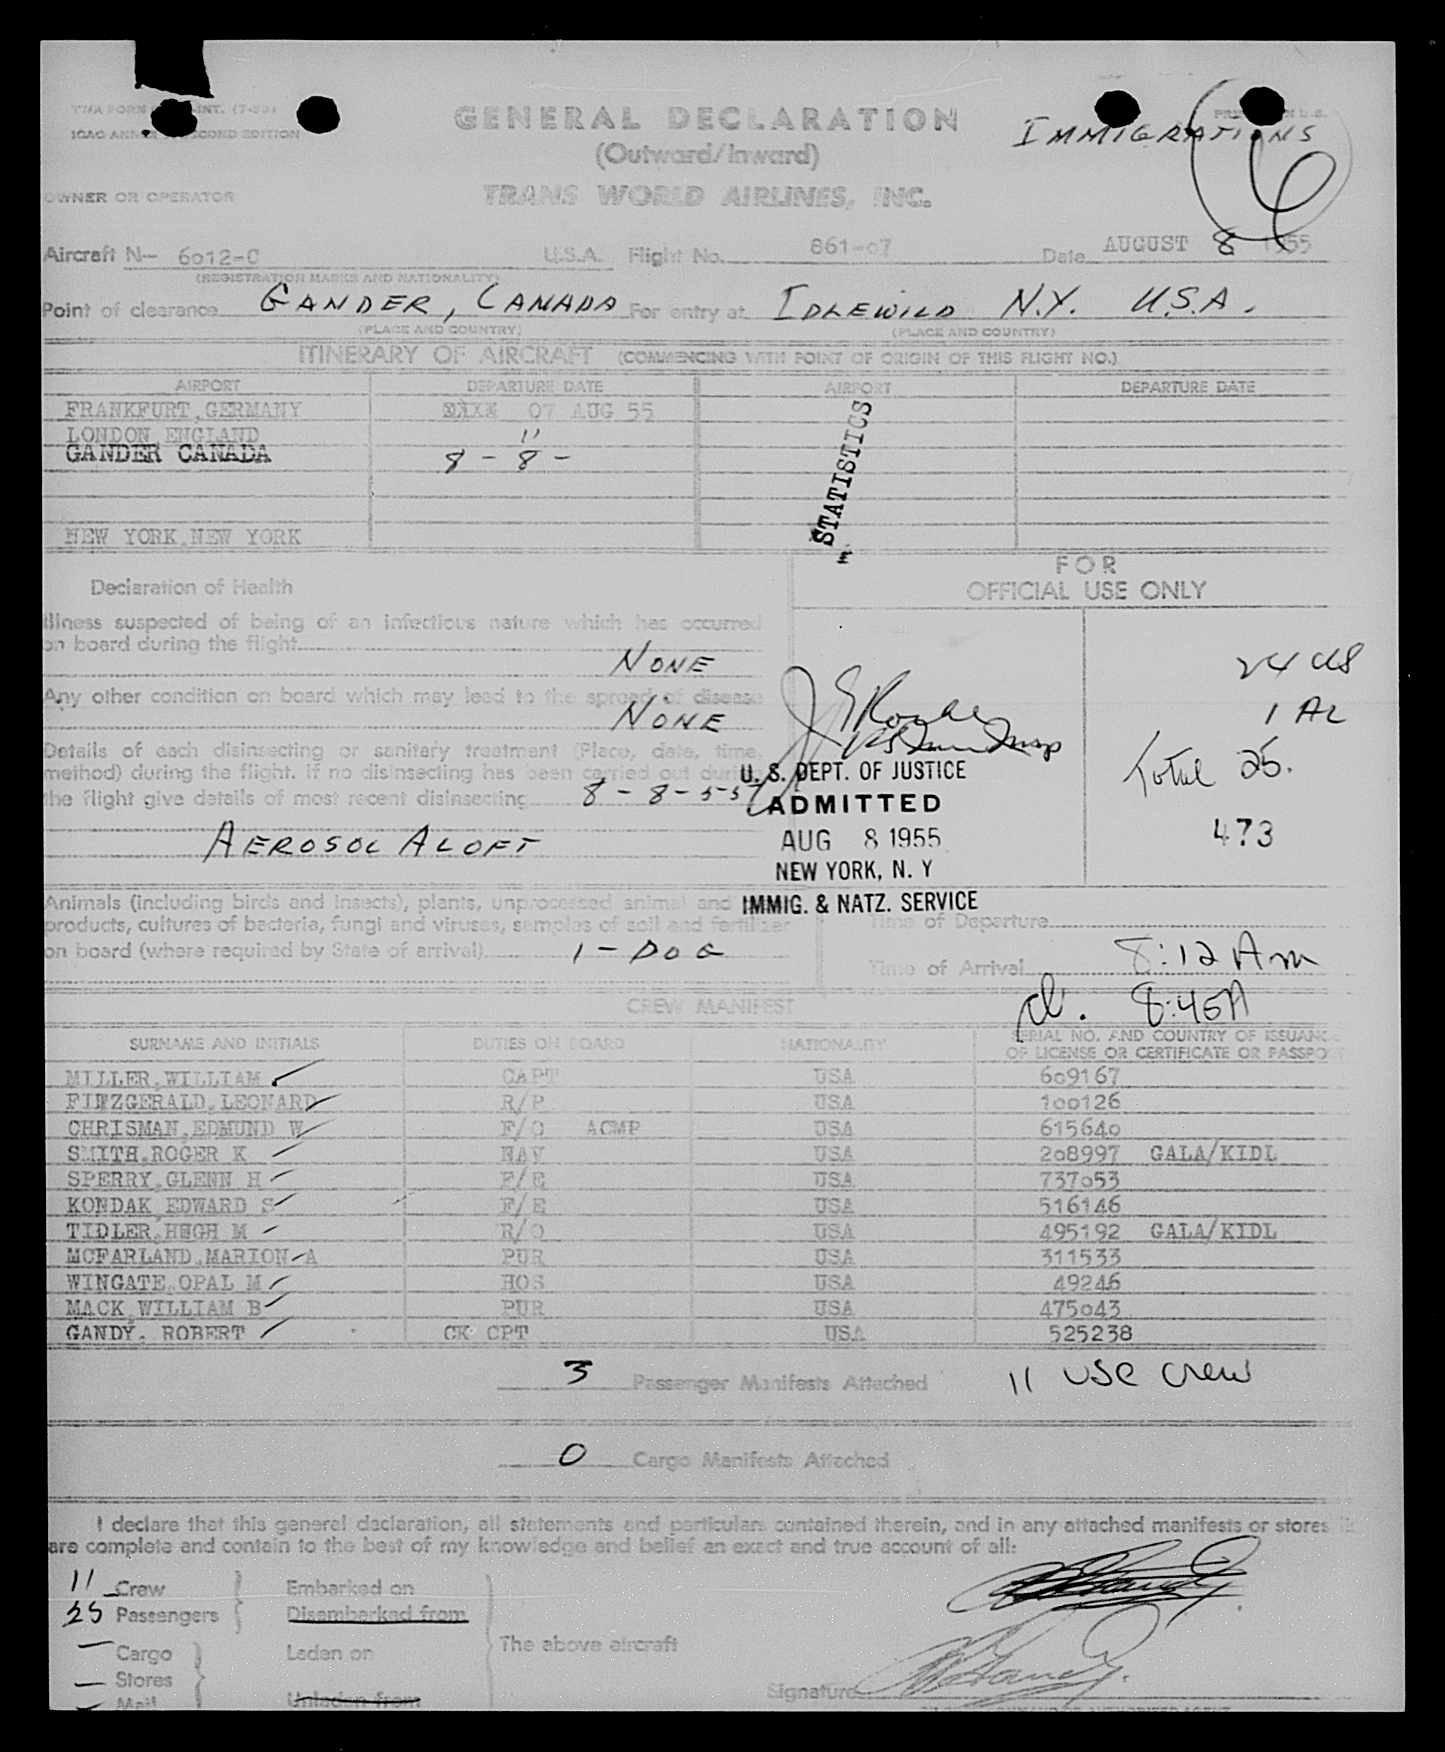 TWA FORM INT. (7-53)
ICAO ANNEX SECOND EDITION
GENERAL DECLARATION
(Outward/Inward)
IMMIGRATIONS
6
OWNER OR OPERATOR
TRANS WORLD AIRLINES, INC.
Aircraft N- 6012-C U.S.A. Flight No. 861-07 Date AUGUST 8 1955
(REGISTRATION MARKS AND NATIONALITY)
Point of clearance GANDER, CANADA For entry at IDLEWILD N.Y. U.S.A.
(PLACE AND COUNTRY) (PLACE AND COUNTRY)
ITINERARY OF AIRCRAFT (COMMENCING WITH POINT OF ORIGIN OF THIS FLIGHT NO.)
AIRPORT DEPARTURE DATE AIRPORT DEPARTURE DATE
FRANKFURT, GERMANY 07 AUG 55
LONDON, ENGLAND "
GANDER CANADA 8-8-
NEW YORK, NEW YORK
STATISTICS
Declaration of Health
FOR
OFFICIAL USE ONLY
Illness suspected of being of an infectious nature which has occurred
on board during the flight
NONE
Any other condition on board which may lead to the spread of disease
NONE
Details of each disinsecting or sanitary treatment (Place, date, time,
method) during the flight. If no disinsecting has been carried out during
the flight give details of most recent disinsecting 8-8-55
AEROSOL ALOFT
24 US
1 AL
Total 25.
473
U. S. DEPT. OF JUSTICE
ADMITTED
AUG 8 1955
NEW YORK, N. Y
IMMIG. & NATZ. SERVICE
Animals (including birds and insects), plants, unprocessed animal and
products, cultures of bacteria, fungi and viruses, samples of soil and fertilizer
on board (where required by State of arrival) 1-DOG
Time of Departure
Time of Arrival 8:12 Am
8:45A
CREW MANIFEST
SURNAME AND INITIALS DUTIES ON BOARD NATIONALITY SERIAL NO. AND COUNTRY OF ISSUANCE
OF LICENSE OR CERTIFICATE OR PASSPO
MILLER, WILLIAM CAPT USA 609167
FITZGERALD, LEONARD R/P USA 100126
CHRISMAN, EDMUND W F/O ACMP USA 615640
SMITH, ROGER K NAV USA 208997 GALA/KIDL
SPERRY, GLENN H F/E USA 737053
KONDAK, EDWARD S F/E USA 516146
TIDLER, HUGH M R/O USA 495192 GALA/KIDL
MCFARLAND, MARION A PUR USA 311533
WINGATE, OPAL M HOS USA 49246
MACK, WILLIAM B PUR USA 475043
GANDY, ROBERT CK CPT USA 525238
3 Passenger Manifests Attached
11 USC Crew
0 Cargo Manifests Attached
I declare that this general declaration, all statements and particulars contained therein, and in any attached manifests or stores
are complete and contain to the best of my knowledge and belief an exact and true account of all:
11 Crew Embarked on
25 Passengers Disembarked from
Cargo Laden on
Stores
Mail Unladen from
The above aircraft
Signature